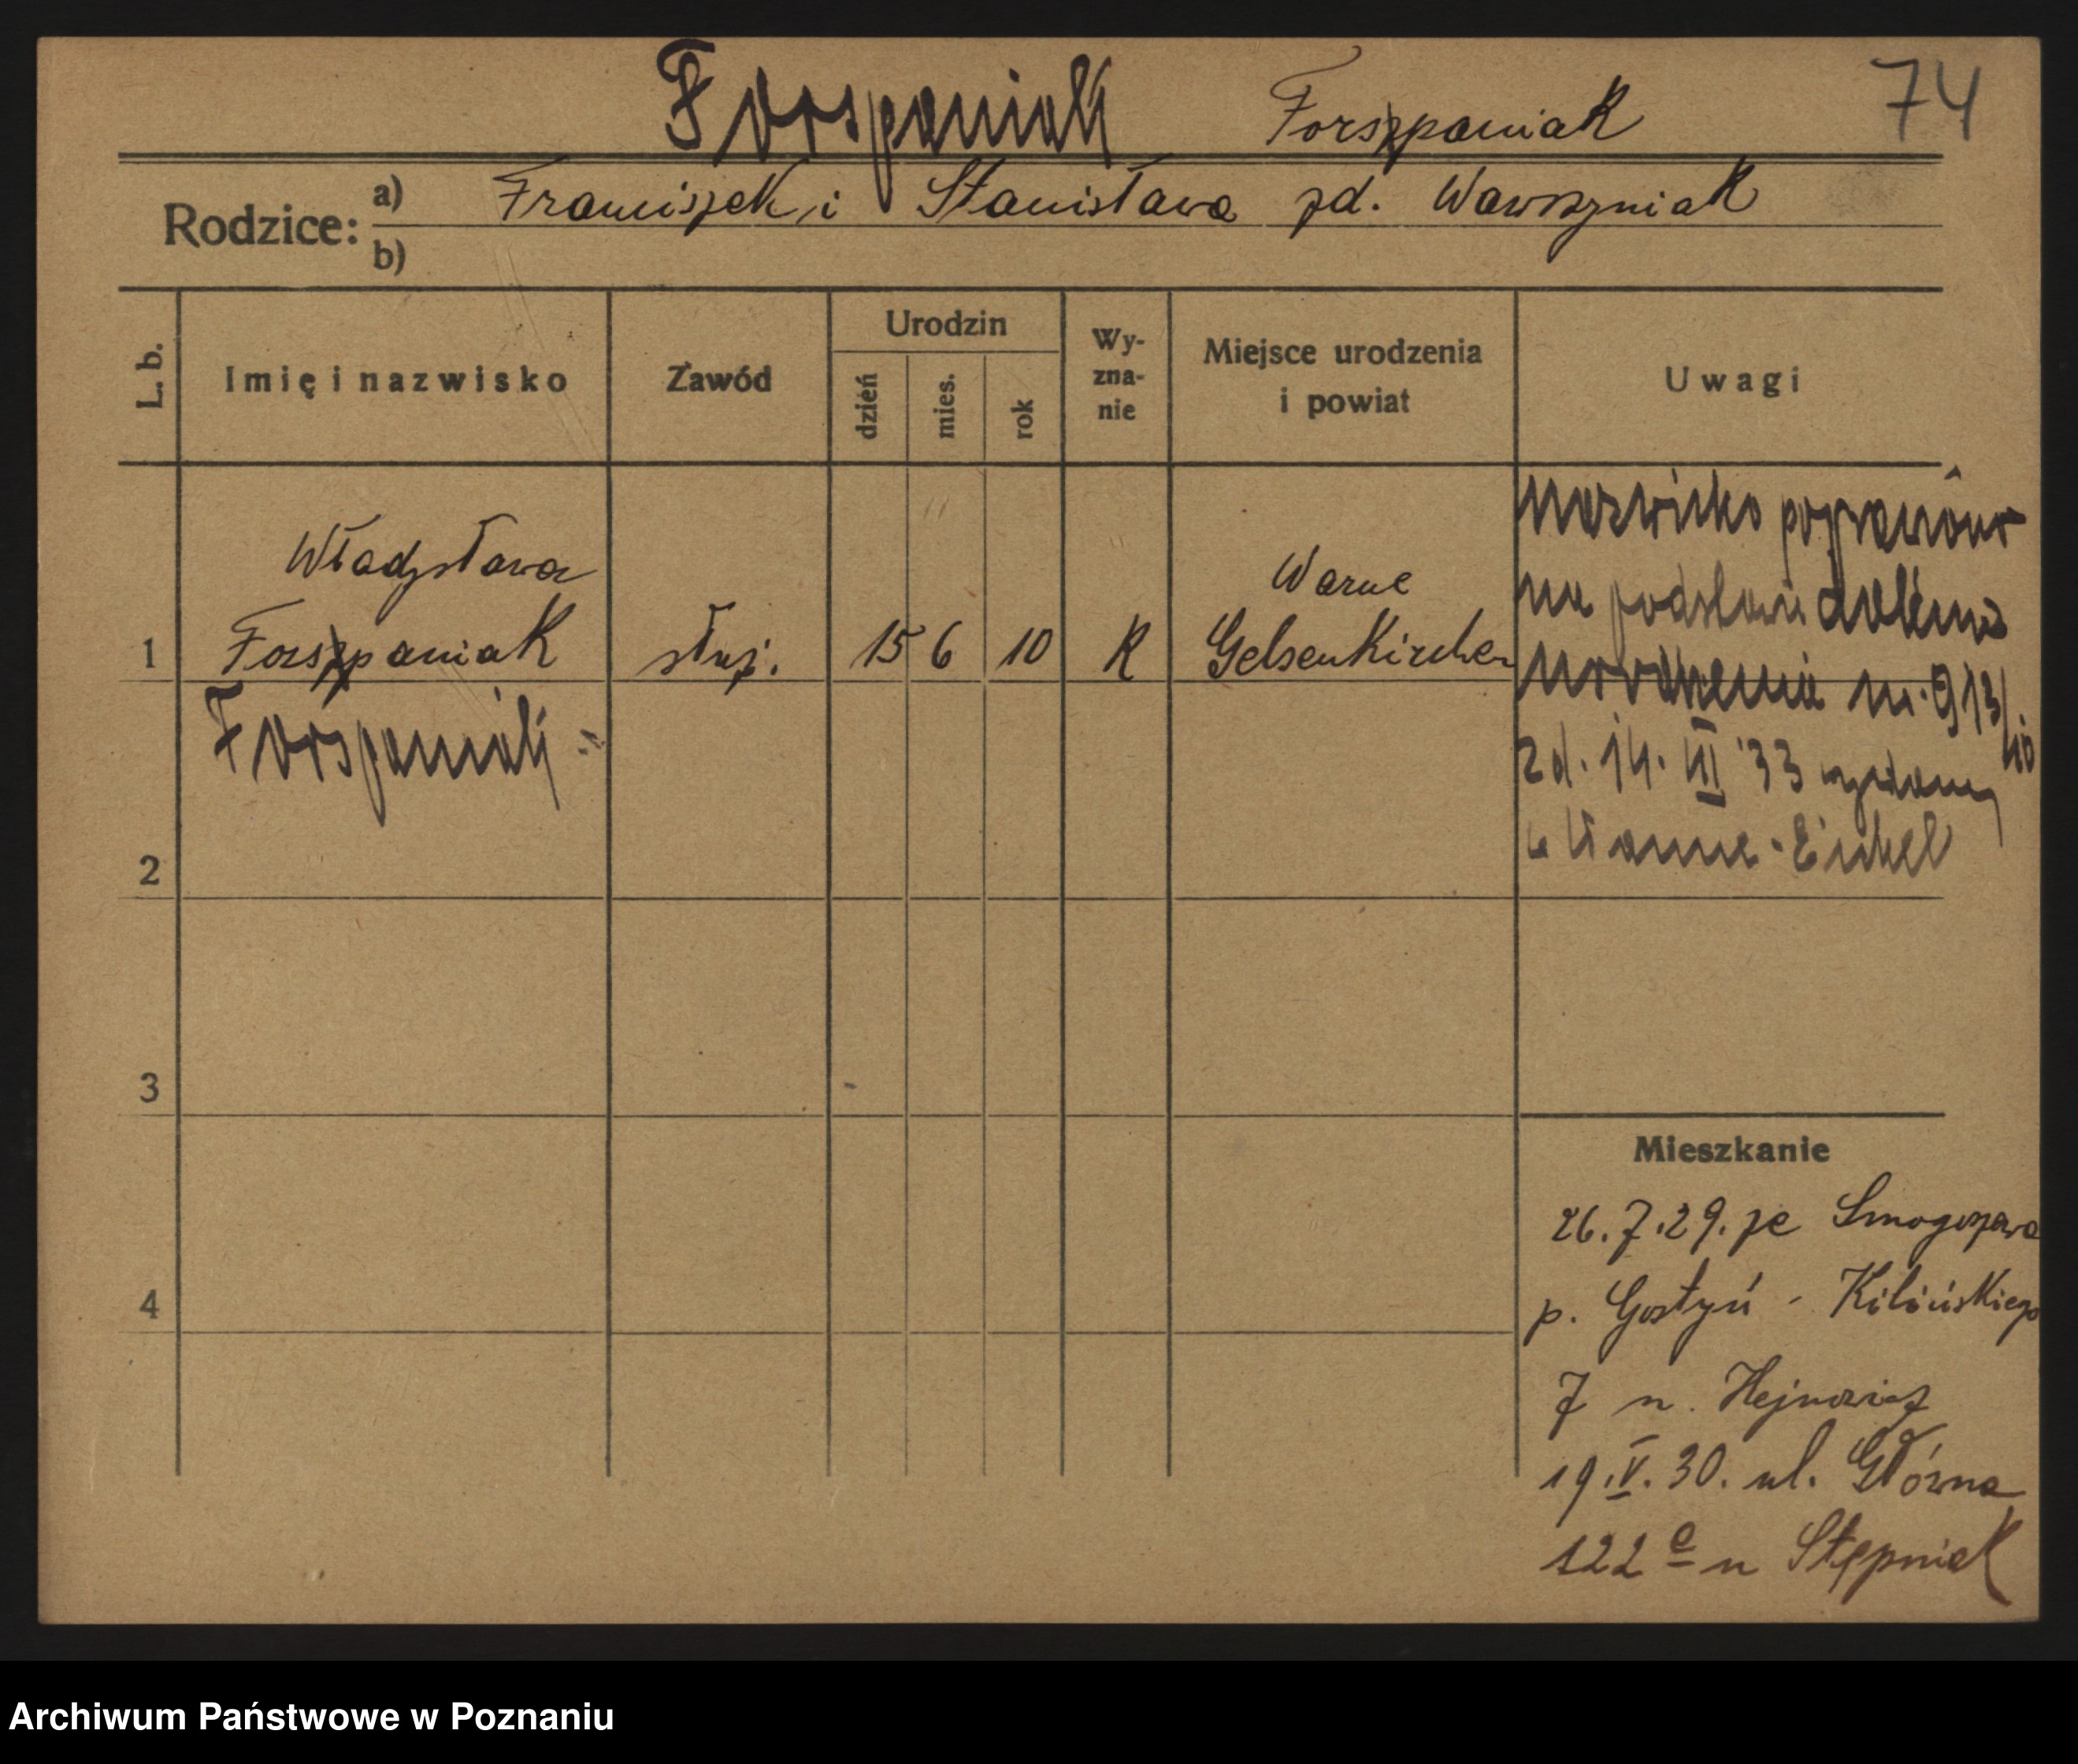 Forspaniak Forszpaniak 74
Rodzice: a) Franciszek i Stanisława zd. Wawrzyniak
b)
L. b. Imię i nazwisko Zawód Urodzin dzień mies. rok Wy-zna-nie Miejsce urodzenia i powiat Uwagi
Władysława
1 Forszpaniak służ. 15 6 10 R Warne Gelsenkirchen
Forspaniak
Nazwisko popraw
na podstawie
urodzenia nr. 913/10
zd. 14. III '33 wydany
w Wanne-Eickel
2
3
4
Mieszkanie
26.7.29. ze Smogorzewa
p. Gostyń - Kilińskiego
7 n. Hejnowicz
19.V.30. ul. Główna
122 e u Stępniak
Archiwum Państwowe w Poznaniu